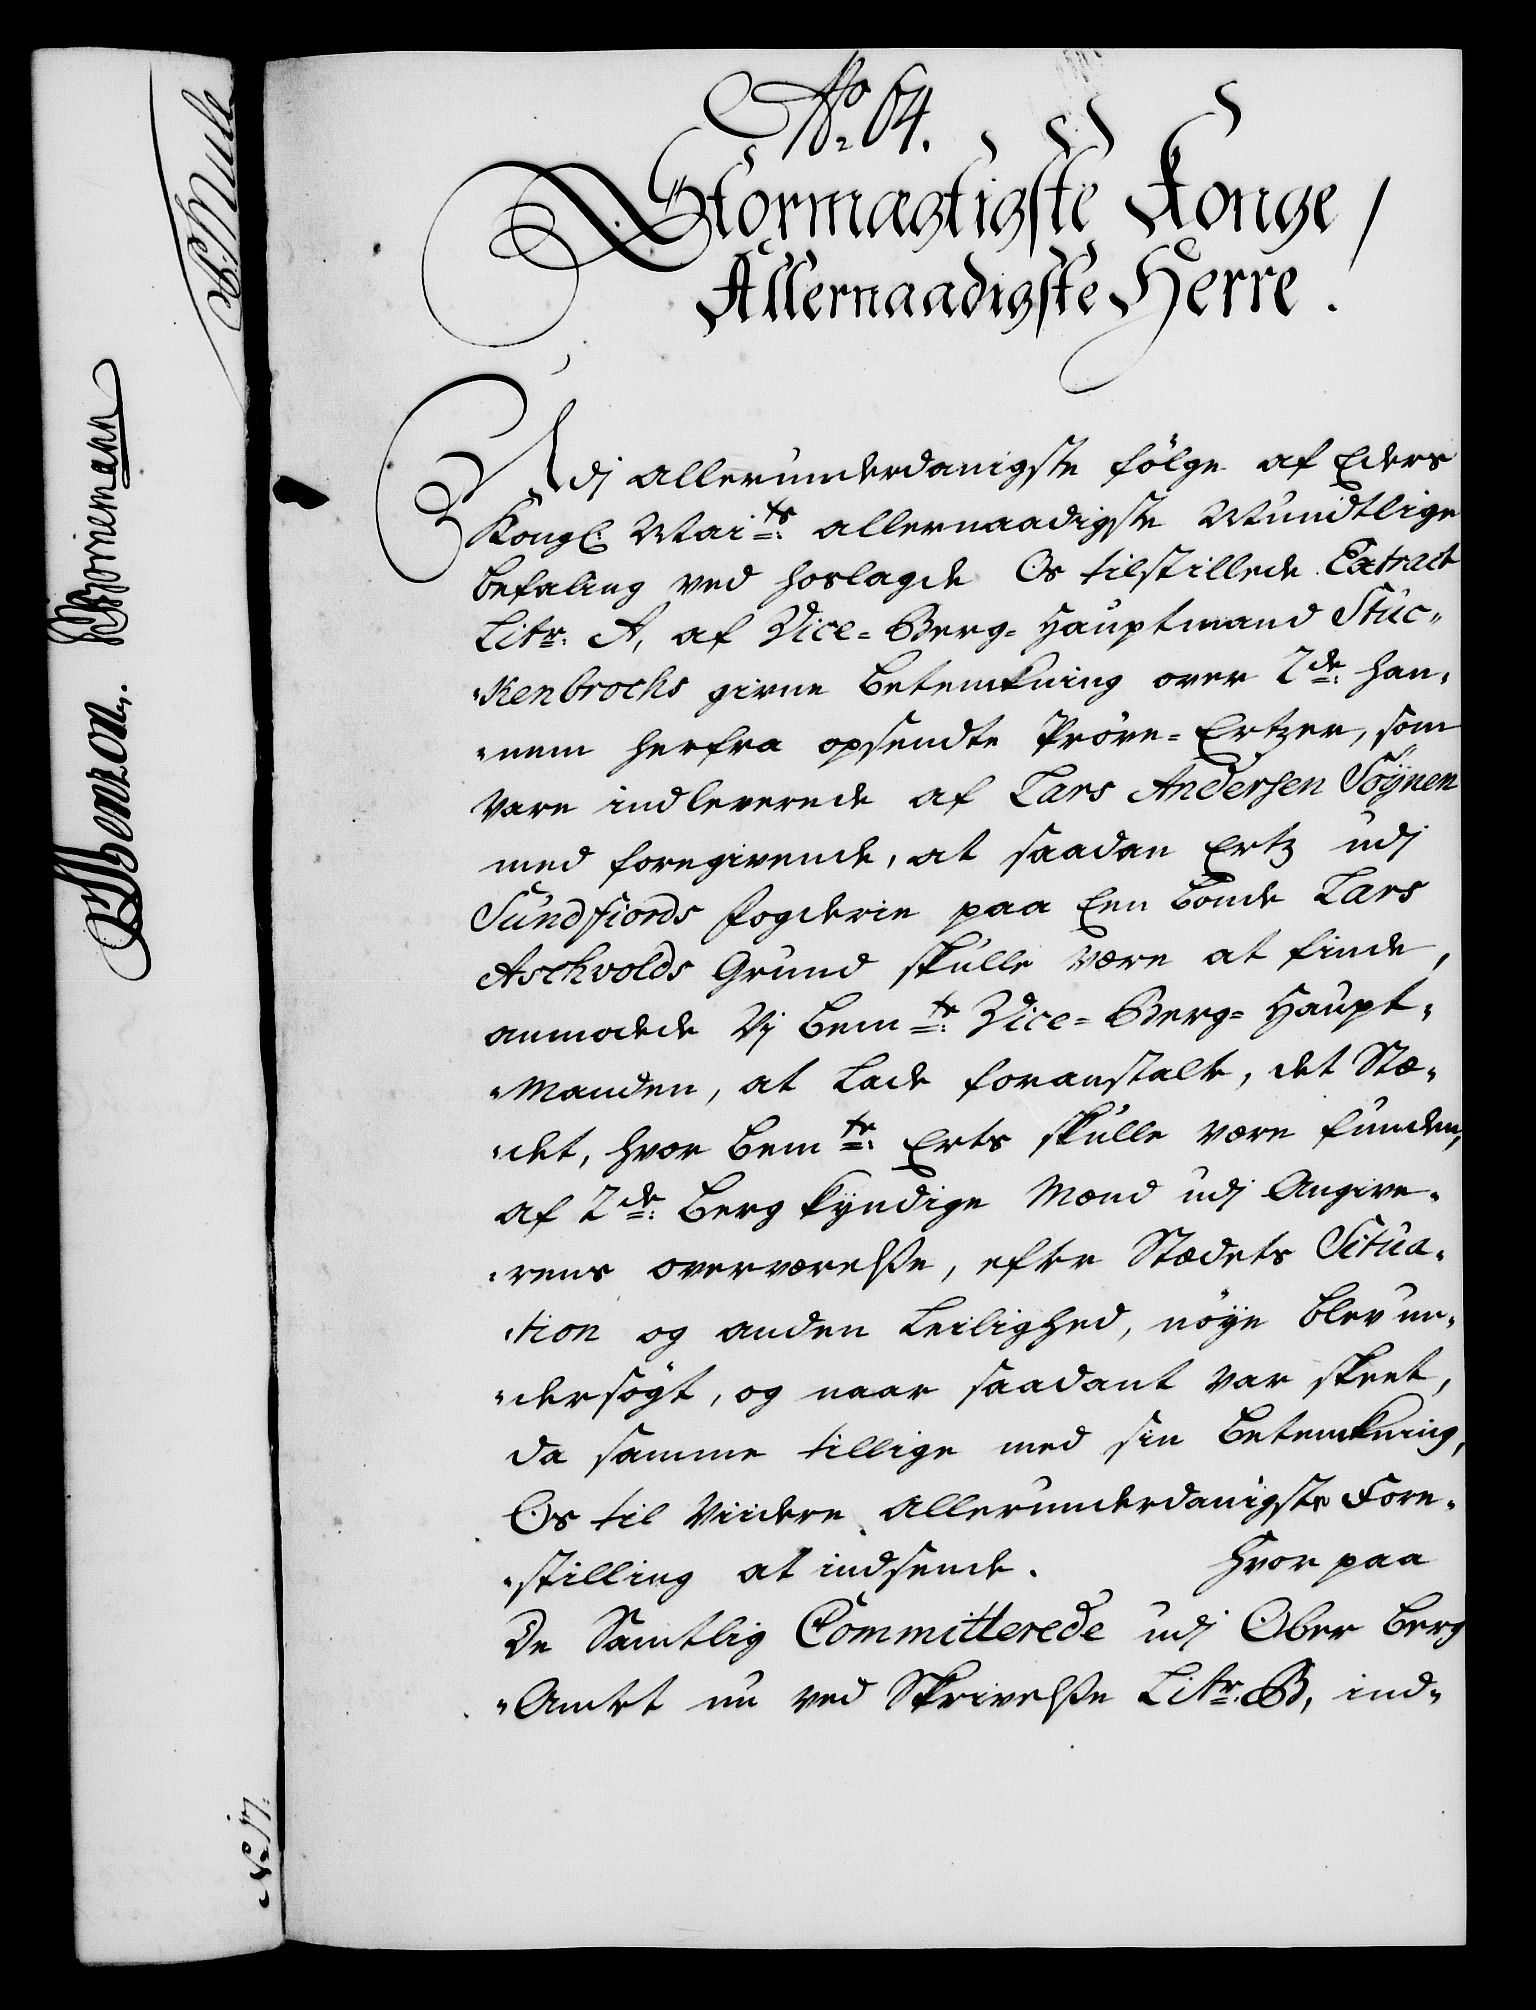 No 64.
Stormægtigste Konge /
Allernaadigste Herre.
Udj allerunderdanigste fölge af Eders
Kongl: Maits: allernaadigste Mundtlige
befaling ved hoslagde Os tilstillede Extract
Litr: A, af Vice=Berg=Hauptmand Stuc„
„Kenbrocks givne betenkning over 2de: han„
„nem herfra opsendte Pröve=Ertzer, som
vare indleverede af Lars Andersen Söynen
med foregivende, at saadan Ertz udj
Sundfiords fogderie paa Een bonde Lars
Aschvolds Grund skulle være at finde,
anmodede Vj bemte: Vice=Berg=Haupt„
„Manden, at lade foranstalte, det Stæ„
„det, hvor bemte: Erts skulle være funden,
af 2de: berg kyndige Mænd udj Angive„
„rens overværelsse, efter Stædets Situa„
„tion og anden leilighed, nöye blev un„
„dersögt, og naar saadant var skeet,
da samme tillige med sin betenkning,
Os til viidere allerunderdanigste Fore„
„stilling at indsende. Hvor paa
De Samtlig Committerede udj Ober berg
„Amtet nu ved Skrivelsse Litr. B, ind„
Benzon.
Bornemann
Mule
No 17.